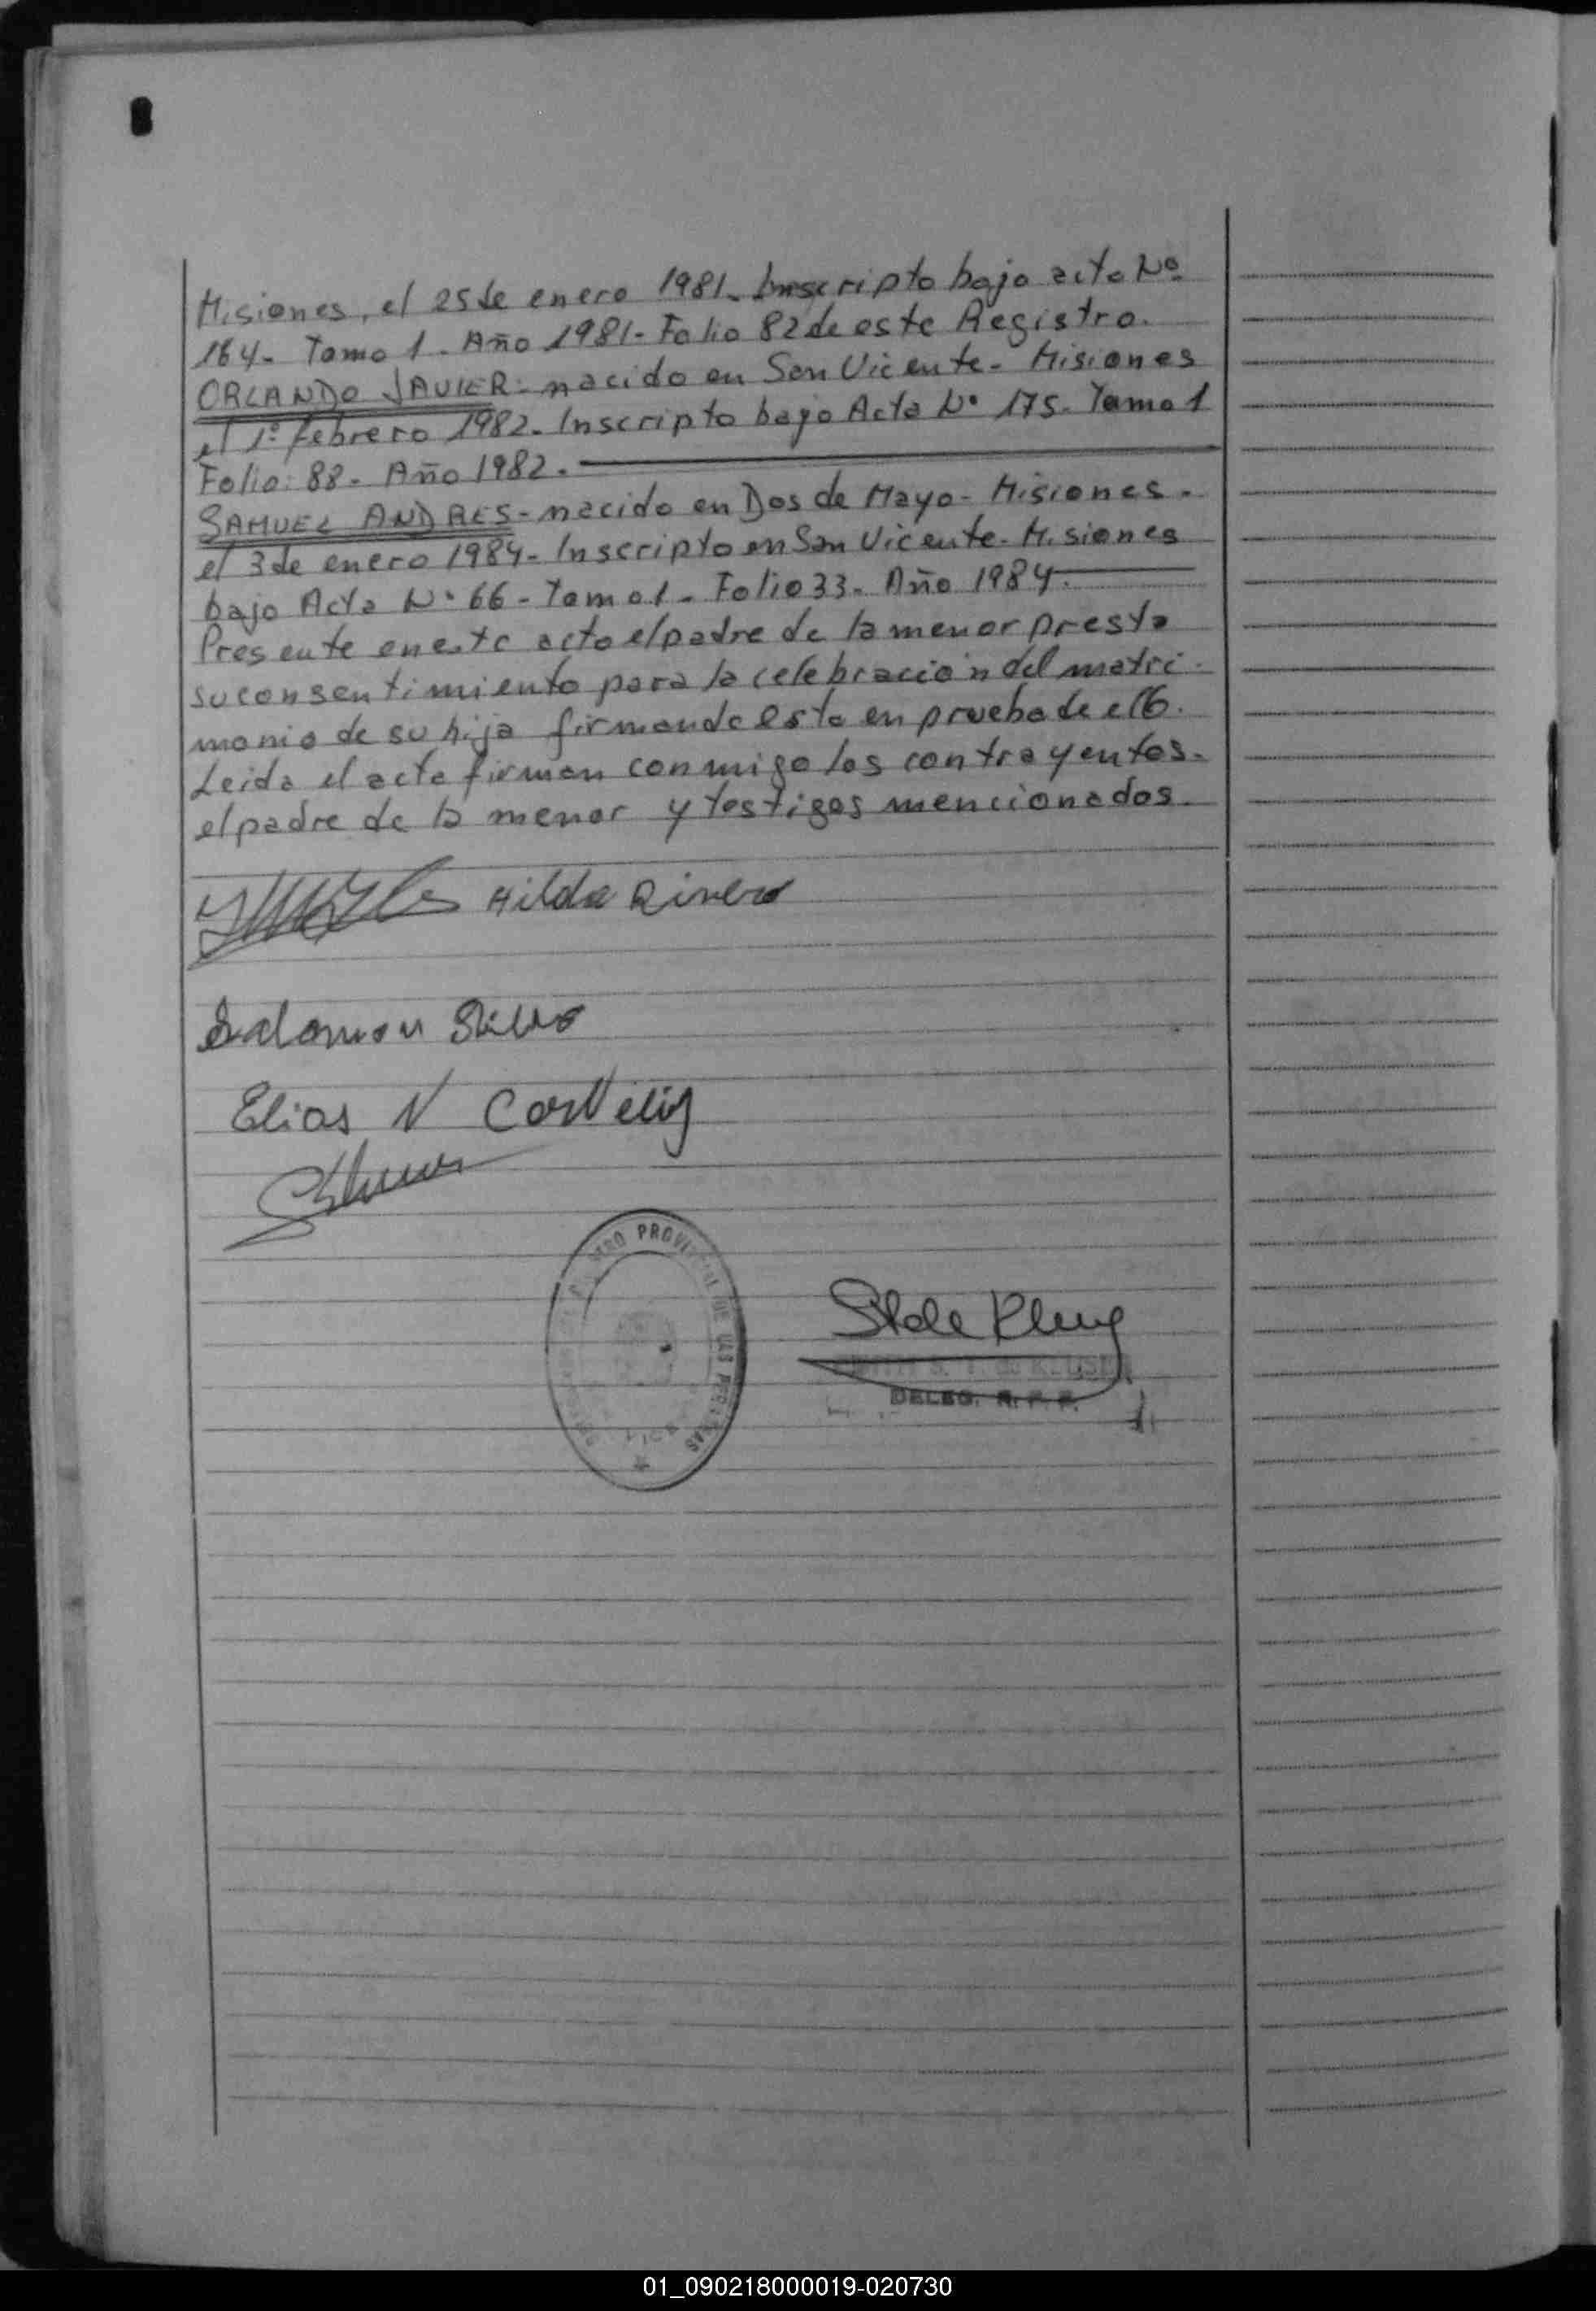 Misiones, el 25 de enero 1981. Inscripto bajo acta Nº
164- Tomo 1- Año 1981- Folio 82 de este Registro.
ORLANDO JAVIER: nacido en San Vicente- Misiones
el 1º febrero 1982. Inscripto bajo Acta Nº 175- Tomo 1
Folio: 88- Año 1982.
SAMUEL ANDRES- nacido en Dos de Mayo- Misiones-
el 3 de enero 1984- Inscripto en San Vicente- Misiones
bajo Acta Nº 66- Tomo 1- Folio 33- Año 1984.
Presente en este acto el padre de la menor presta
su consentimiento para la celebración del matri-
monio de su hija firmando esta en prueba de ello.
Leida el acta firman conmigo los contrayentes-
el padre de la menor y testigos mencionados.
Hilda Rivero
Salomon Silva
Elias N
PROVINCIAL DE LAS PERSONAS
DELEG. R. P. P.
01_090218000019-020730